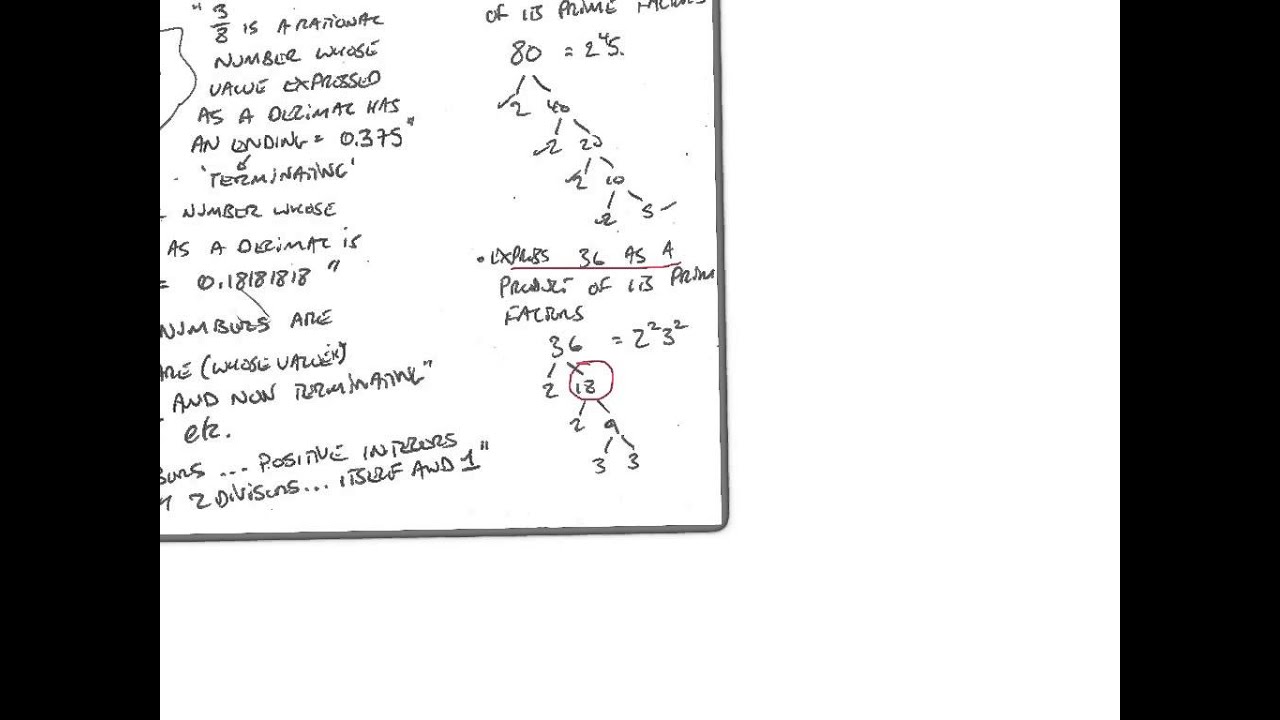 " 3/8 IS A RATIONAL
NUMBER WHOSE
VALUE EXPRESSED
AS A DECIMAL HAS
AN ENDING = 0.375"
'TERMINATING'
NUMBER WHOSE
AS A DECIMAL IS
= 0.18181818 "
NUMBERS ARE
ARE (WHOSE VALUE)
AND NON TERMINATING"
etc.
... POSITIVE INTEGERS
2 DIVISORS... ITSELF AND 1"
OF ITS PRIME FACTORS
80 = 2⁴5.
2 40
2 20
2 10
2 5
• EXPRESS 36 AS A
PRODUCT OF ITS PRIME
FACTORS
36 = 2²3²
2 18
2 9
3 3